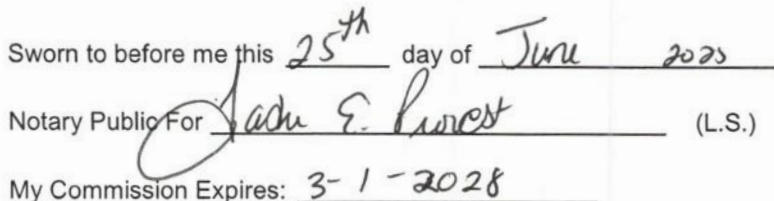 Sworn to before me this 25th day of June 2025
Notary Public For E. (L.S.)
My Commission Expires: 3-1-2028